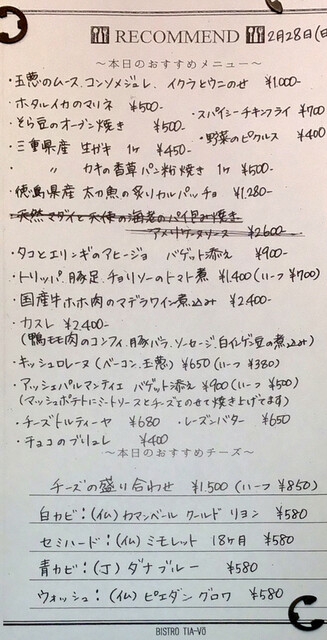 RECOMMEND 2月28日(日
〜本日のおすすめメニュー〜
・玉葱のムース、コンソメジュレ、イクラとウニのせ ¥1.000-
・ホタルイカのマリネ ¥500-
・スパイシーチキンフライ ¥700
・そら豆のオーブン焼き ¥500-
・野菜のピクルス ¥400
・三重県産 生ガキ 1ヶ ¥450-
・ 〃 カキの香草パン粉焼き 1ヶ ¥500-
・徳島県産 太刀魚の炙りカルパッチョ ¥1.280-
天然マダイと天使の海老のパイ包み焼き
アメリケーヌソース ¥2600-
・タコとエリンギのアヒージョ バゲット添え ¥900-
・トリッパ、豚足、チョリソーのトマト煮 ¥1.400(ハーフ ¥700)
・国産牛ホホ肉のマデラワイン煮込み ¥2.400-
・カスレ ¥2.400-
(鴨モモ肉のコンフィ、豚バラ、ソーセージ、白インゲン豆の煮込み)
・キッシュロレーヌ(ベーコン、玉葱) ¥650(ハーフ ¥380)
・アッシェパルマンティエ バゲット添え ¥900(ハーフ ¥500)
(マッシュポテトにミートソースとチーズをのせて焼き上げてます)
・チーズトルティーヤ ¥680 ・レーズンバター ¥650
・チョコのブリュレ ¥400
〜本日のおすすめチーズ〜
チーズの盛り合わせ ¥1.500(ハーフ ¥850)
白カビ:(仏)カマンベール クールド リヨン ¥580
セミハード:(仏)ミモレット 18ヶ月 ¥580
青カビ:(丁)ダナブルー ¥580
ウォッシュ:(仏)ピエダングロワ ¥580
BISTRO TIA-VŌ